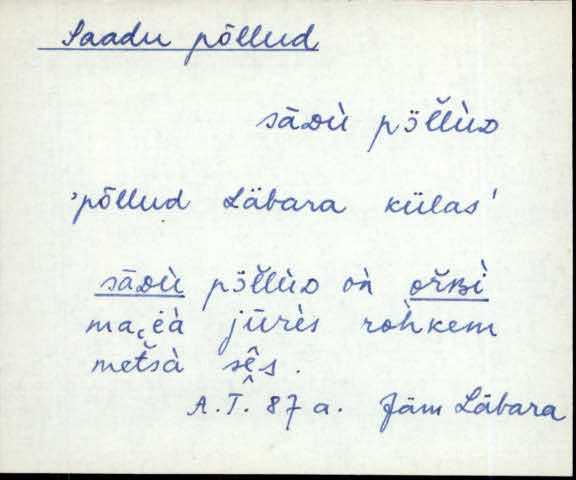 Saadu põllud
sāDù pö̆l̆lùD
'põllud Läbara külas'
sāDù pö̆l̆lùD oǹ or̆Bì
jūrès rohkem
met̆sà sês.
A.T. 87 a. Jäm Läbara